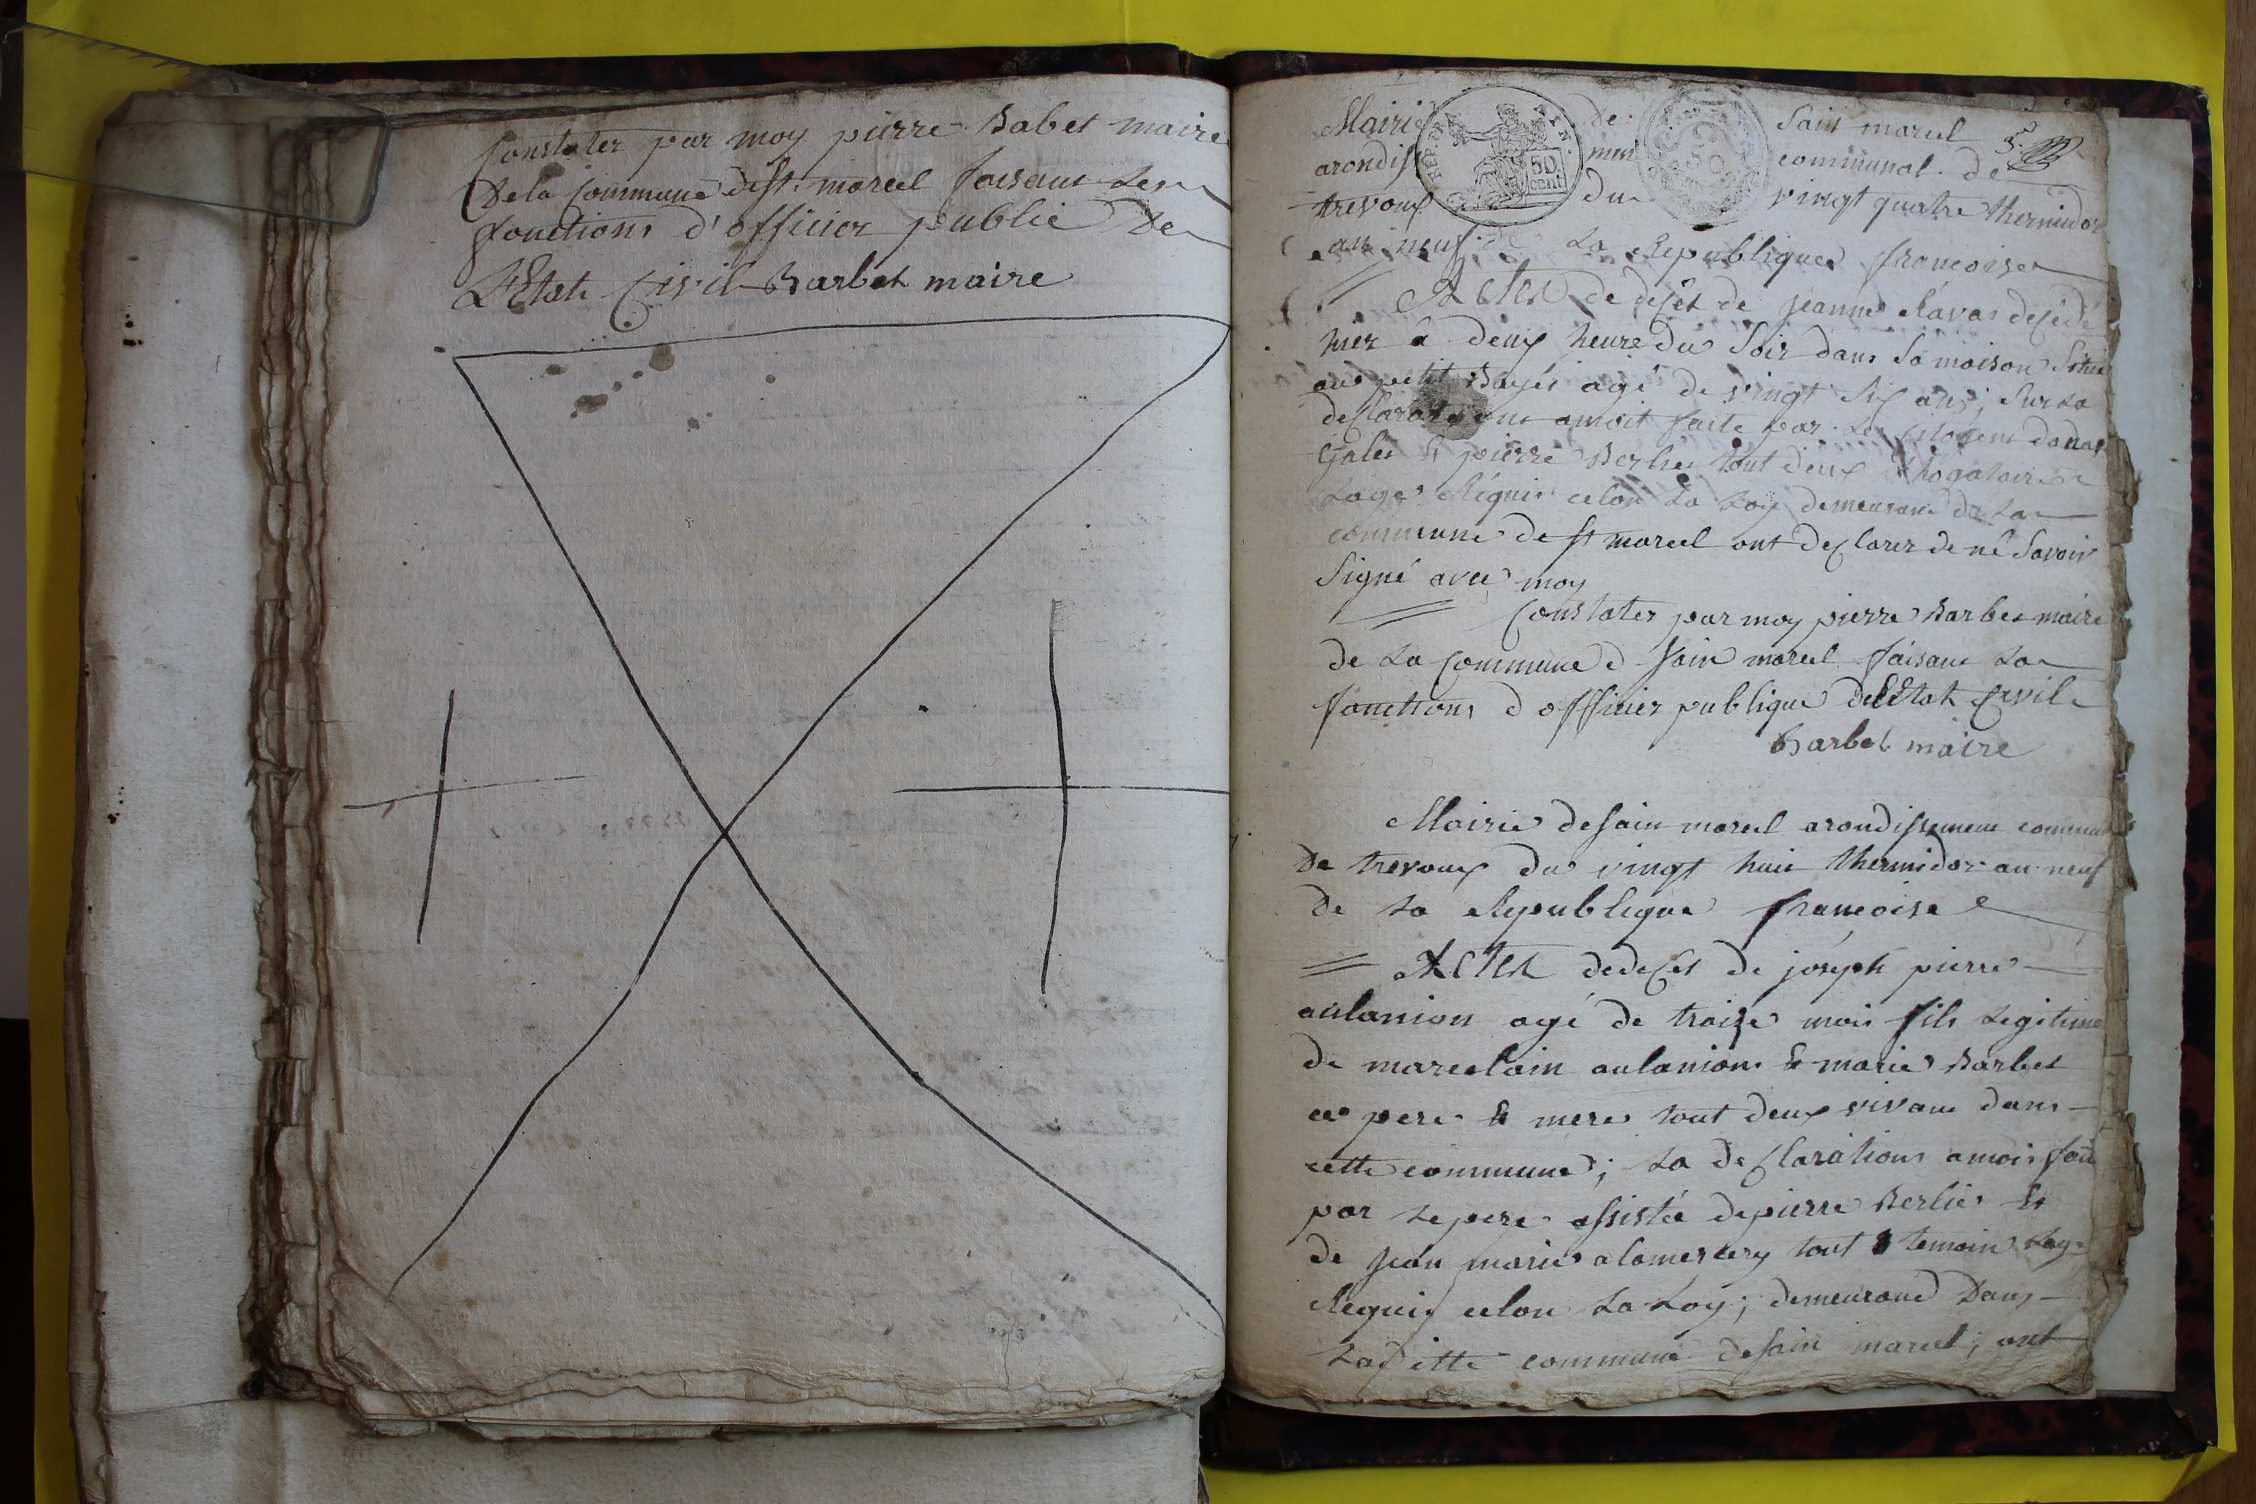 Constater par moy pierre Babet maire
De la Commune de St. marcel faisant Les
fonctions d'officier public De
L'Etat Civil Barbet maire
Mairie De Sain marcel 5.
arondissement communal de
trevoux du vingt quatre thermidor
an neuf de La Republique francoise
REP. FRA. 50 cent
Actes de decès de jeanne decédé
hier a deux heure du Soir dans Sa maison Situé
au petit agé de vingt Six ans; Sur La
declaration amoit faite par Les citoyens
& pierre Berlie tout deux
Requis celon La Loy demeurant de La
commune de St marcel ont declarer de né Savoir
Signé avec moy
Constater par moy pierre Barbet maire
de La Commune d Sain marcel faisant La
fonctions d officier publique de l'Etat Civil
Barbet maire
Mairie de Sain marcel arondissement commun
De trevoux du vingt huit thermidor an neuf
De La Republique françoise
Actes de decès de joseph pierre
aulanion agé de traize mois fils Legitime
de marcelain aulanion & marie Barbet
ce pere & mere tout deux vivant dans
cette commune; La declaration a moi fait
par Le pere assistée de pierre Berlie &
de jean marie alamercery tout temoin
Requis celon La Loy; demeurand Dans
Laditte commune de Sain marcel; ont